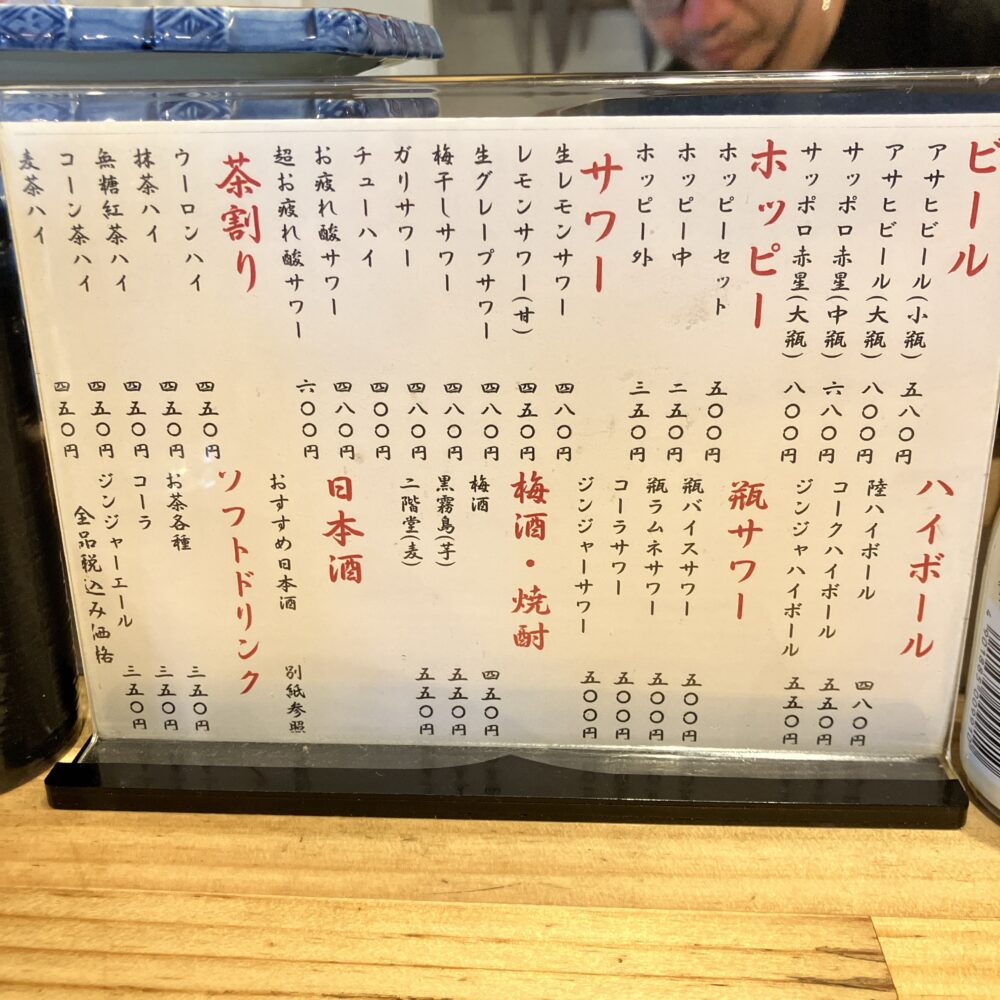 ビール
アサヒビール(小瓶) 五八〇円
アサヒビール(大瓶) 八〇〇円
サッポロ赤星(中瓶) 六八〇円
サッポロ赤星(大瓶) 八〇〇円
ホッピー
ホッピーセット 五〇〇円
ホッピー中 二五〇円
ホッピー外 三五〇円
サワー
生レモンサワー 四八〇円
レモンサワー(甘) 四五〇円
生グレープサワー 四八〇円
梅干しサワー 四八〇円
ガリサワー 四八〇円
チューハイ 四〇〇円
お疲れ酸サワー 四八〇円
超お疲れ酸サワー 六〇〇円
茶割り
ウーロンハイ 四五〇円
抹茶ハイ 四五〇円
無糖紅茶ハイ 四五〇円
コーン茶ハイ 四五〇円
麦茶ハイ 四五〇円
ハイボール
陸ハイボール 四八〇円
コークハイボール 五五〇円
ジンジャハイボール 五五〇円
瓶サワー
瓶バイスサワー 五〇〇円
瓶ラムネサワー 五〇〇円
コーラサワー 五〇〇円
ジンジャーサワー 五〇〇円
梅酒・焼酎
梅酒 四五〇円
黒霧島(芋) 五五〇円
二階堂(麦) 五五〇円
日本酒
おすすめ日本酒 別紙参照
ソフトドリンク
お茶各種 三五〇円
コーラ 三五〇円
ジンジャーエール 三五〇円
全品税込み価格